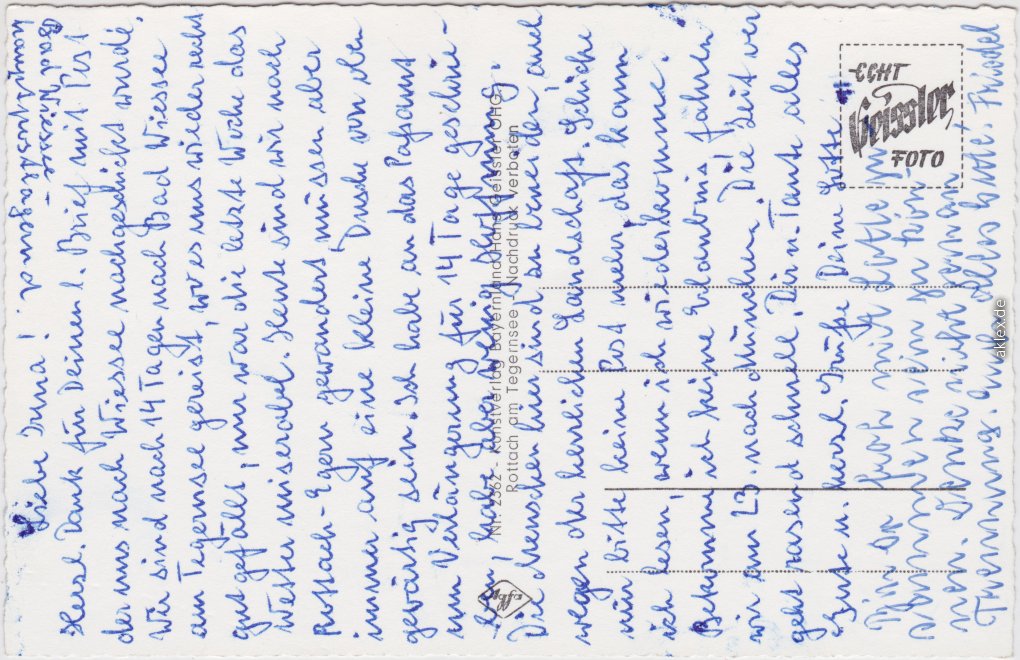 Bad Wiessee
hauptpostlagernd!
Liebe Irma!
Herzl. Dank für Deinen l. Brief mit Post
der uns nach Wiessee nachgeschickt wurde.
Wir sind nach 14 Tagen nach Bad Wiessee
am Tegernsee gereist, wo es uns wieder recht
gut gefällt, nur war die letzte Woche das
Wetter miserabel. Heute sind wir nach
Rottach-Egern gewandert müssen aber
immer auf eine kleine Dusche von oben
gewärtig sein. Ich habe an das Passamt
um Verlängerung für 14 Tage geschrie-
ben, habe aber wenig Hoffnung.
Viel Menschen hier sind zu beneiden, auch
wegen der herrlichen Landschaft. Schicke
mir bitte keine Post mehr, das kann
ich lesen, wenn ich wiederkomme.
Bekomme ich keine Erlaubnis fahren
wir am 23. nach München. Die Zeit ver
geht rasend schnell. Dir u. Tante alles
Gute u. herzl. Grüße Deine Lotte.
Bin so froh mit Lotte zu-
sammen sein zu kön-
nen. Denke nicht gern an
Trennung. Auch alles Gute! Friedel
Nr. 2562 - Kunstverlag Bayernland Hans Geissler OHG.
Rottach am Tegernsee - Nachdruck verboten
Agfa
ECHT
Geissler
FOTO
aklex.de